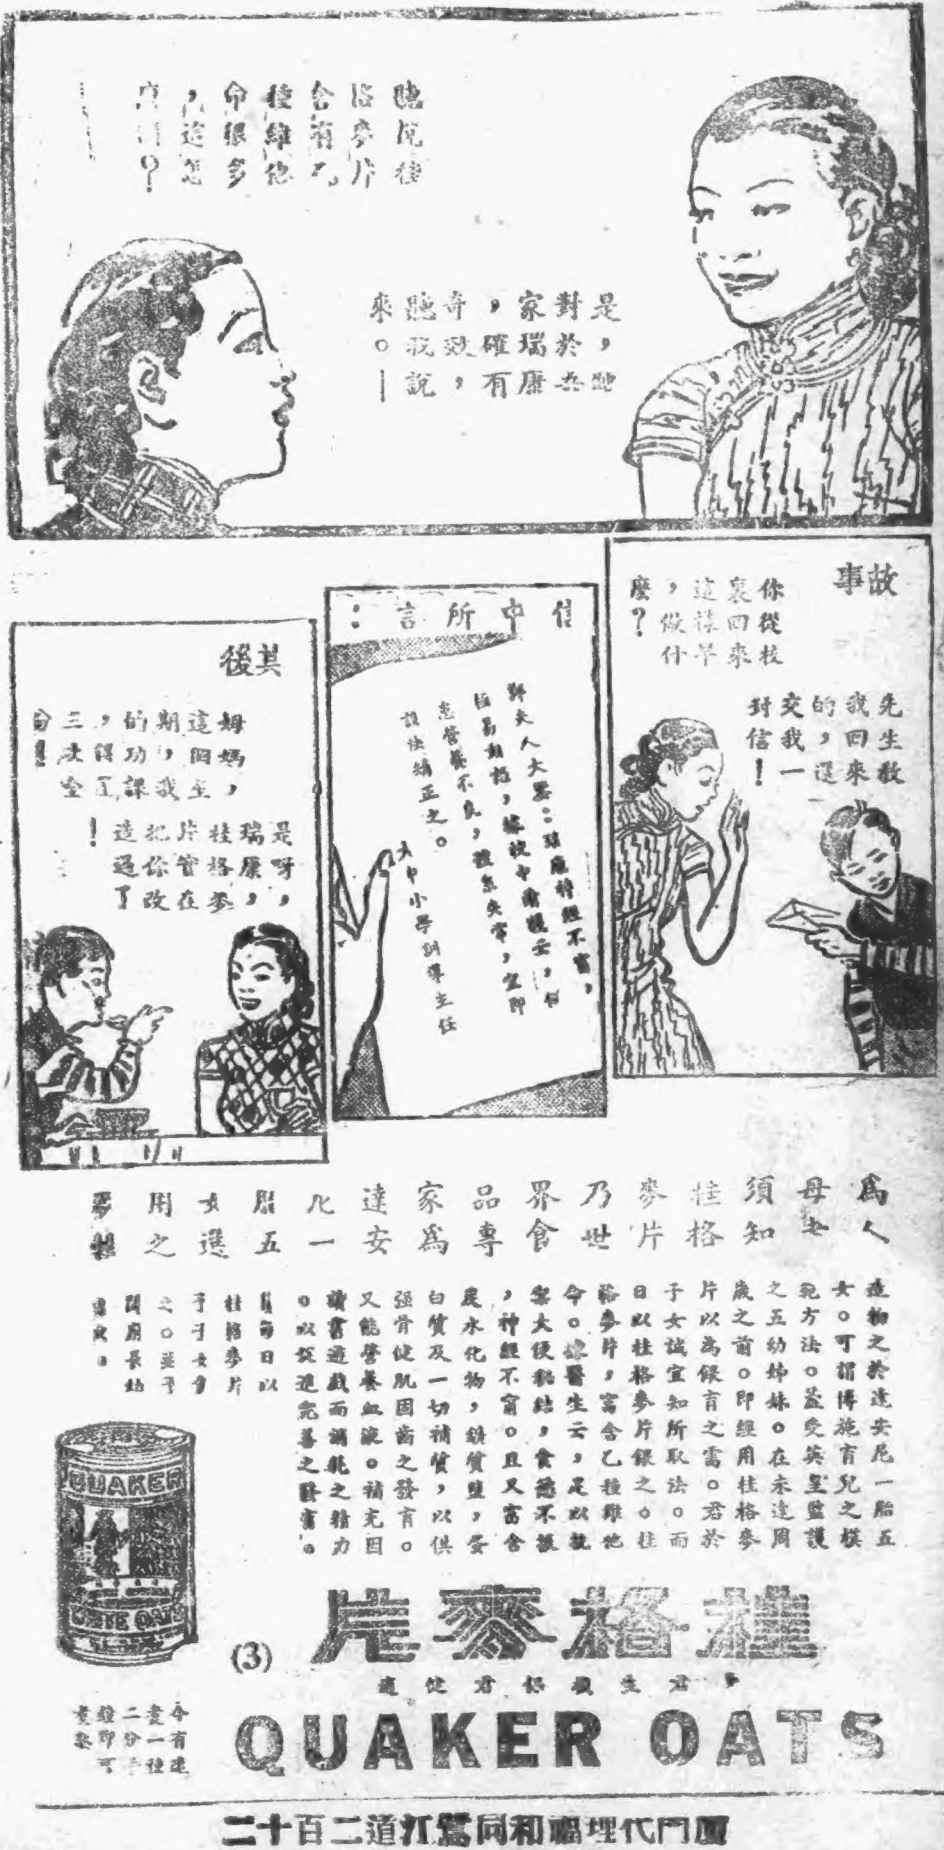 聽說桂
格麥片
含有乙
種維他
命很多
，這怎
是，牠
對於吾
家瑞康
，確有
奇效，
聽我說
來。——
故事
你從校
裏回來
這樣早
，做什
麼？
先生教
我回來
的，還
交我一
封信！
信中所言：
野夫人大鑒：瑞康神經不甯，
意營養不良，雜氣失常，宜即
設法矯正之。
大中小學訓導主任
其後
姆媽，
這個
期，我
的功課
，得
三次全
是呀，
瑞康，
桂格麥
片管在
把你改
造過了
！
為人
母者
須知
桂格
麥片
乃世
界食
品專
家為
達安
尼一
胎五
女選
用之
麥糧
造物之於達安尼一胎五
女。可謂博施育兒之模
範方法。蓋受英皇監護
之五幼姊妹。在未達周
歲之前。即經用桂格麥
片以為保育之需。君於
子女誠宜知所取法。而
日以桂格麥片飼之。桂
格麥片，富含乙種維他
命。據醫生云，足以抗
禦大便秘結，食慾不振
，神經不甯。且又富含
炭水化物，鐵質鹽，蛋
白質及一切補質，以供
強骨健肌固齒之發育。
又能營養血液。補充因
讀書遊戲而消耗之精力
。以促進完善之發育。
每日以
桂格麥片
予子女食
之。並予
闔府長幼
QUAKER
WHITE OATS
桂格麥片
(3)
QUAKER OATS
今有速
煮一種
二分半
鐘即可
煮熟
廈門代理福和同鷺江道二百十二